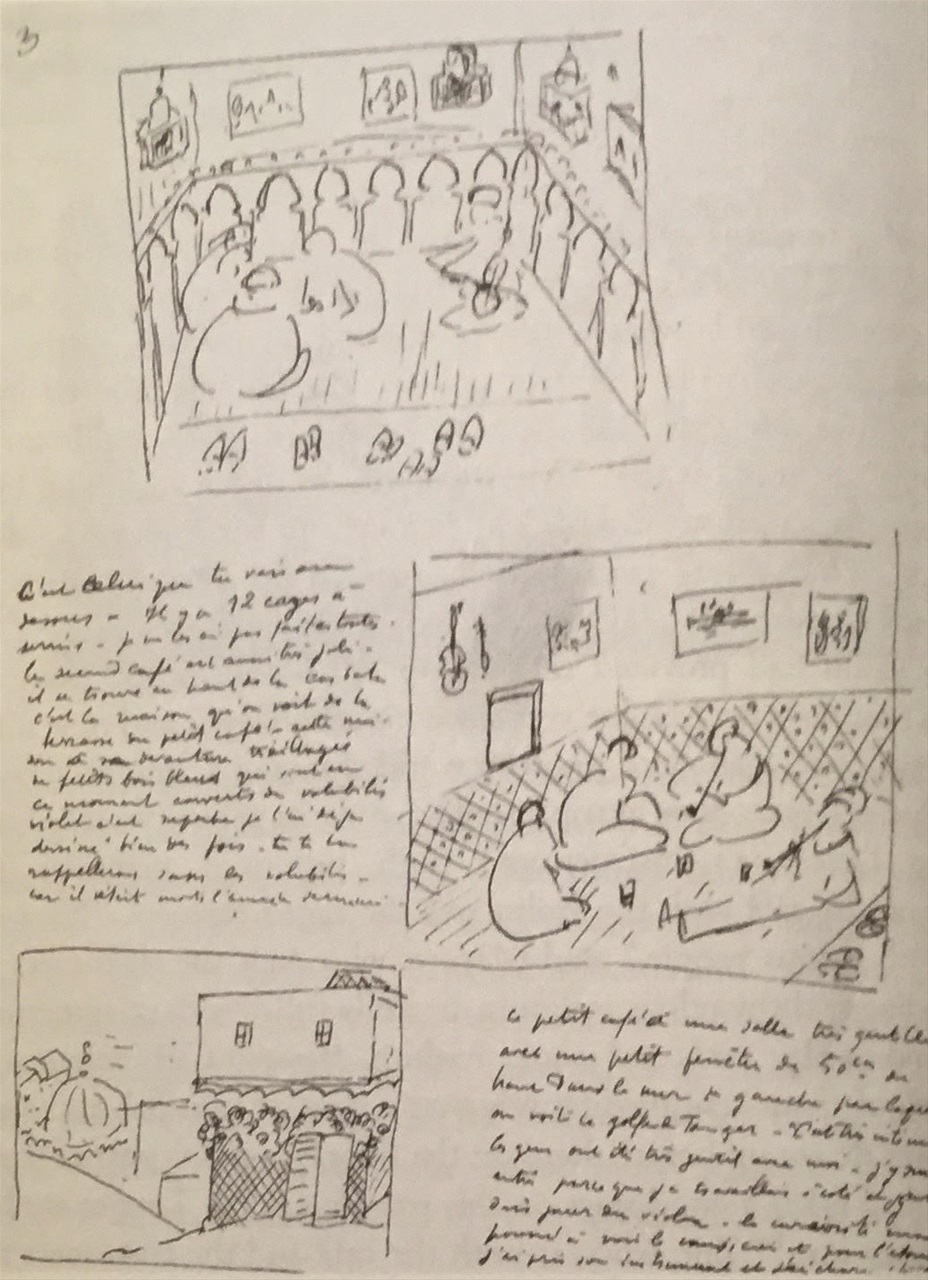 3
C'est celui que tu vois au
dessus - Il y a 12 cages à
serins - je ne les ai pas faites toutes -
le second café est aussi très joli -
il se trouve au haut de la Casbah
c'est la maison qu'on voit de la
terrasse du petit café - cette
son a devanture treillagés
de petits bois bleus qui sont en
ce moment couverts de volubilis
violet c'est superbe je l'ai déjà
dessiné bien des fois - tu te
rappelleras sans les volubilis -
car il était morts l'année dernière
Ce petit café a une salle très
avec une petit fenêtre de 50 cm de
haut dans le mur à gauche par
on voit le golfe de Tanger - C'est très
les gens ont été très gentil avec moi - j'y
entré parce que je travaillais à coté
jouer du violon - la curiosité
poussé à voir le et pour
j'ai pris son instrument et